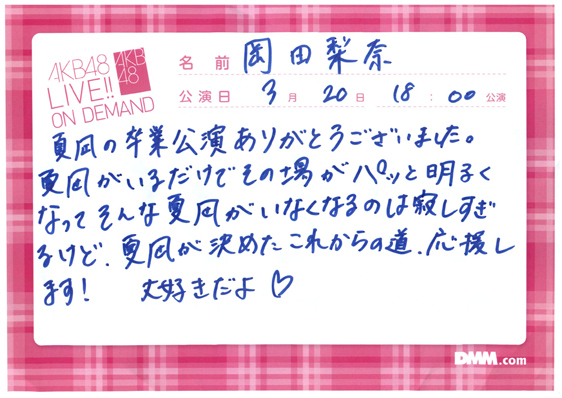 AKB48
LIVE!!
ON DEMAND
AKB
48
名前 岡田梨奈
公演日 3月20日 18:00公演
夏凪の卒業公演ありがとうございました。
夏凪がいるだけでその場がパッと明るく
なってそんな夏凪がいなくなるのは寂しすぎ
るけど、夏凪が決めたこれからの道、応援し
ます! 大好きだよ♡
DMM.com